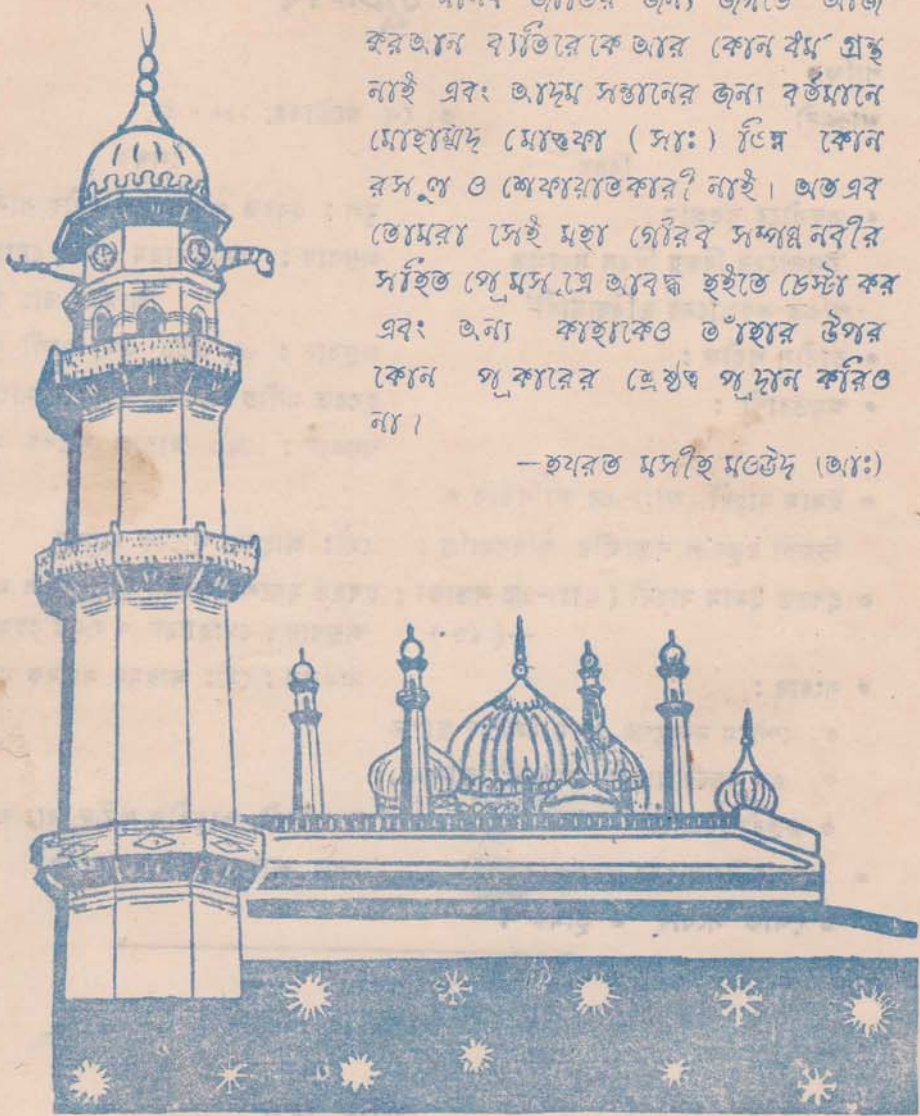 মানব জাতির জন্য জগতে আজ
কুরআন ব্যতিরেকে আর কোন ধর্ম গ্রন্থ
নাই এবং আদম সন্তানের জন্য বর্তমানে
মোহাম্মদ মোস্তফা ( সাঃ ) ভিন্ন কোন
রসূল ও শেফায়াতকারী নাই। অতএব
তোমরা সেই মহা গৌরব সম্পন্ন নবীর
সহিত প্রেমসূত্রে আবদ্ধ হইতে চেস্টা কর
এবং অন্য কাহাকেও তাঁহার উপর
কোন প্রকারের শ্রেষ্ঠত্ব প্রদান করিও
না।
—হযরত মসীহ মওউদ (আঃ)